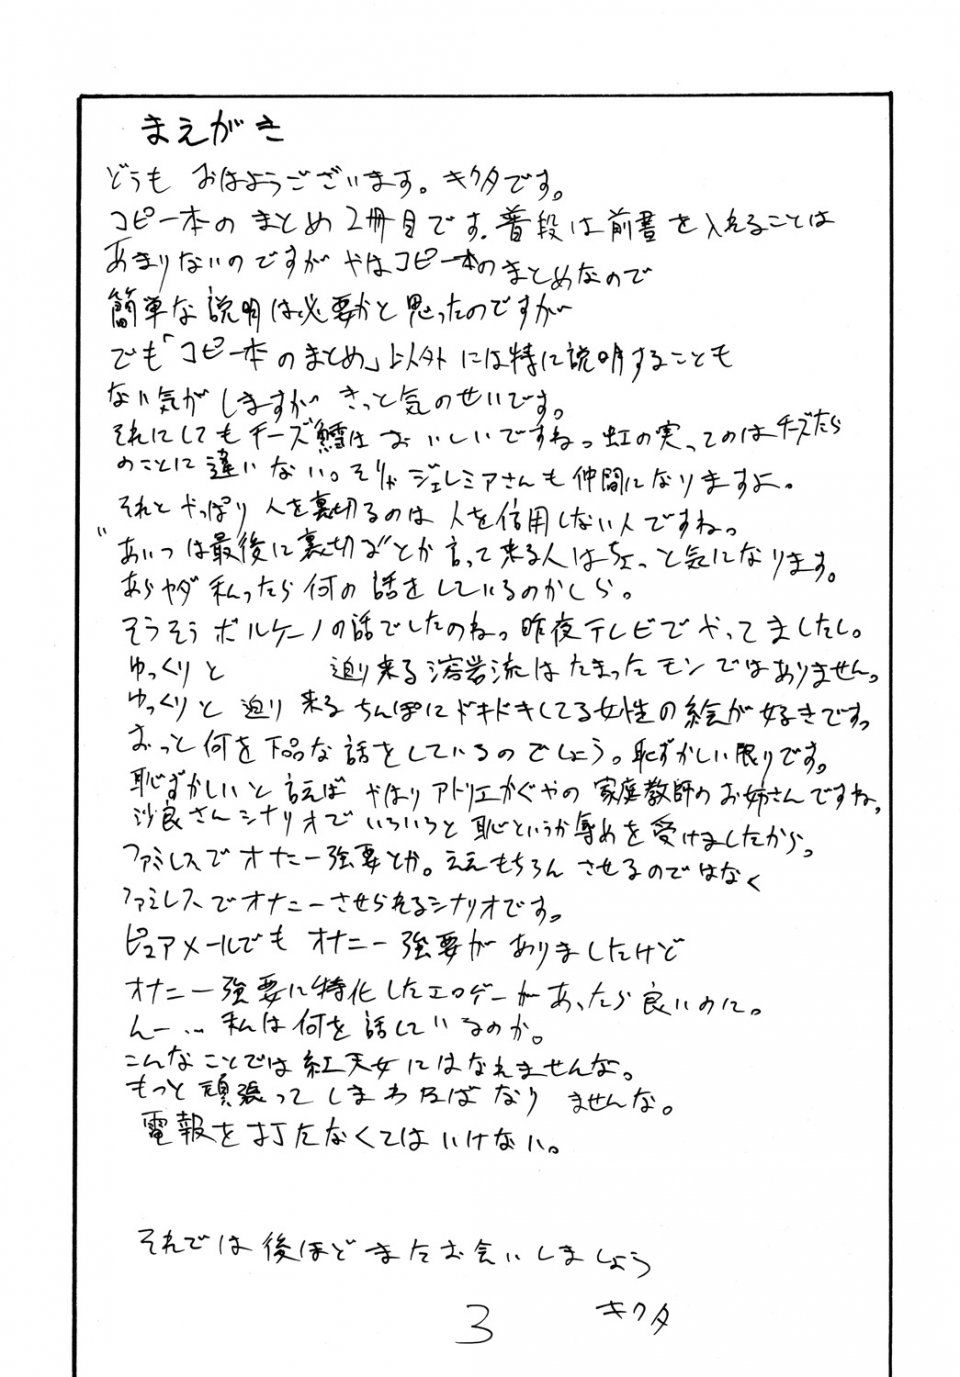 まえがき
どうも おはようございます。キクタです。
コピー本の まとめ 2冊目です。普段は前書を入れることは
あまりないのですが やはコピー本のまとめなので
簡単な説明は必要かと思ったのですが
でも「コピー本のまとめ」以外には特に説明することも
ない気が しますが きっと気のせいです。
それにしてもチーズ鱈は おいしいですね。虹の実ってのはチーズたら
のことに違いない。そりゃジェレミアさんも仲間になりますよ。
それと やっぱり 人を裏切るのは 人を信用しない人ですね。
"あいつは最後に裏切る"とか言って来る人はちょっと気になります。
あらヤダ 私ったら何の話をしているのかしら。
そうそう ボルケーノの話でしたのね。昨夜テレビでやってましたし。
ゆっくりと 迫り来る溶岩流はたまったモンではありません。
ゆっくりと 迫り来るちんぽにドキドキしてる女性の絵が好きです。
おっと何を下品な話をしているのでしょう。恥ずかしい限りです。
恥ずかしいと言えば やはりアトリエかぐやの 家庭教師のお姉さんですね。
沙良さんシナリオでいろいろと恥というか辱めを受けましたから。
ファミレスでオナニー強要とか。ええもちろん させるのではなく
ファミレスでオナニーさせられるシナリオです。
ピュアメールでも オナニー強要がありましたけど
オナニー強要に特化したエロゲーがあったら良いのに。
んー… 私は何を話しているのか。
こんなことでは紅天女にはなれませんな。
もっと頑張って しまわねばなりませんな。
電報を打たなくてはいけない。
それでは後ほどまたお会いしましょう
キクタ
3